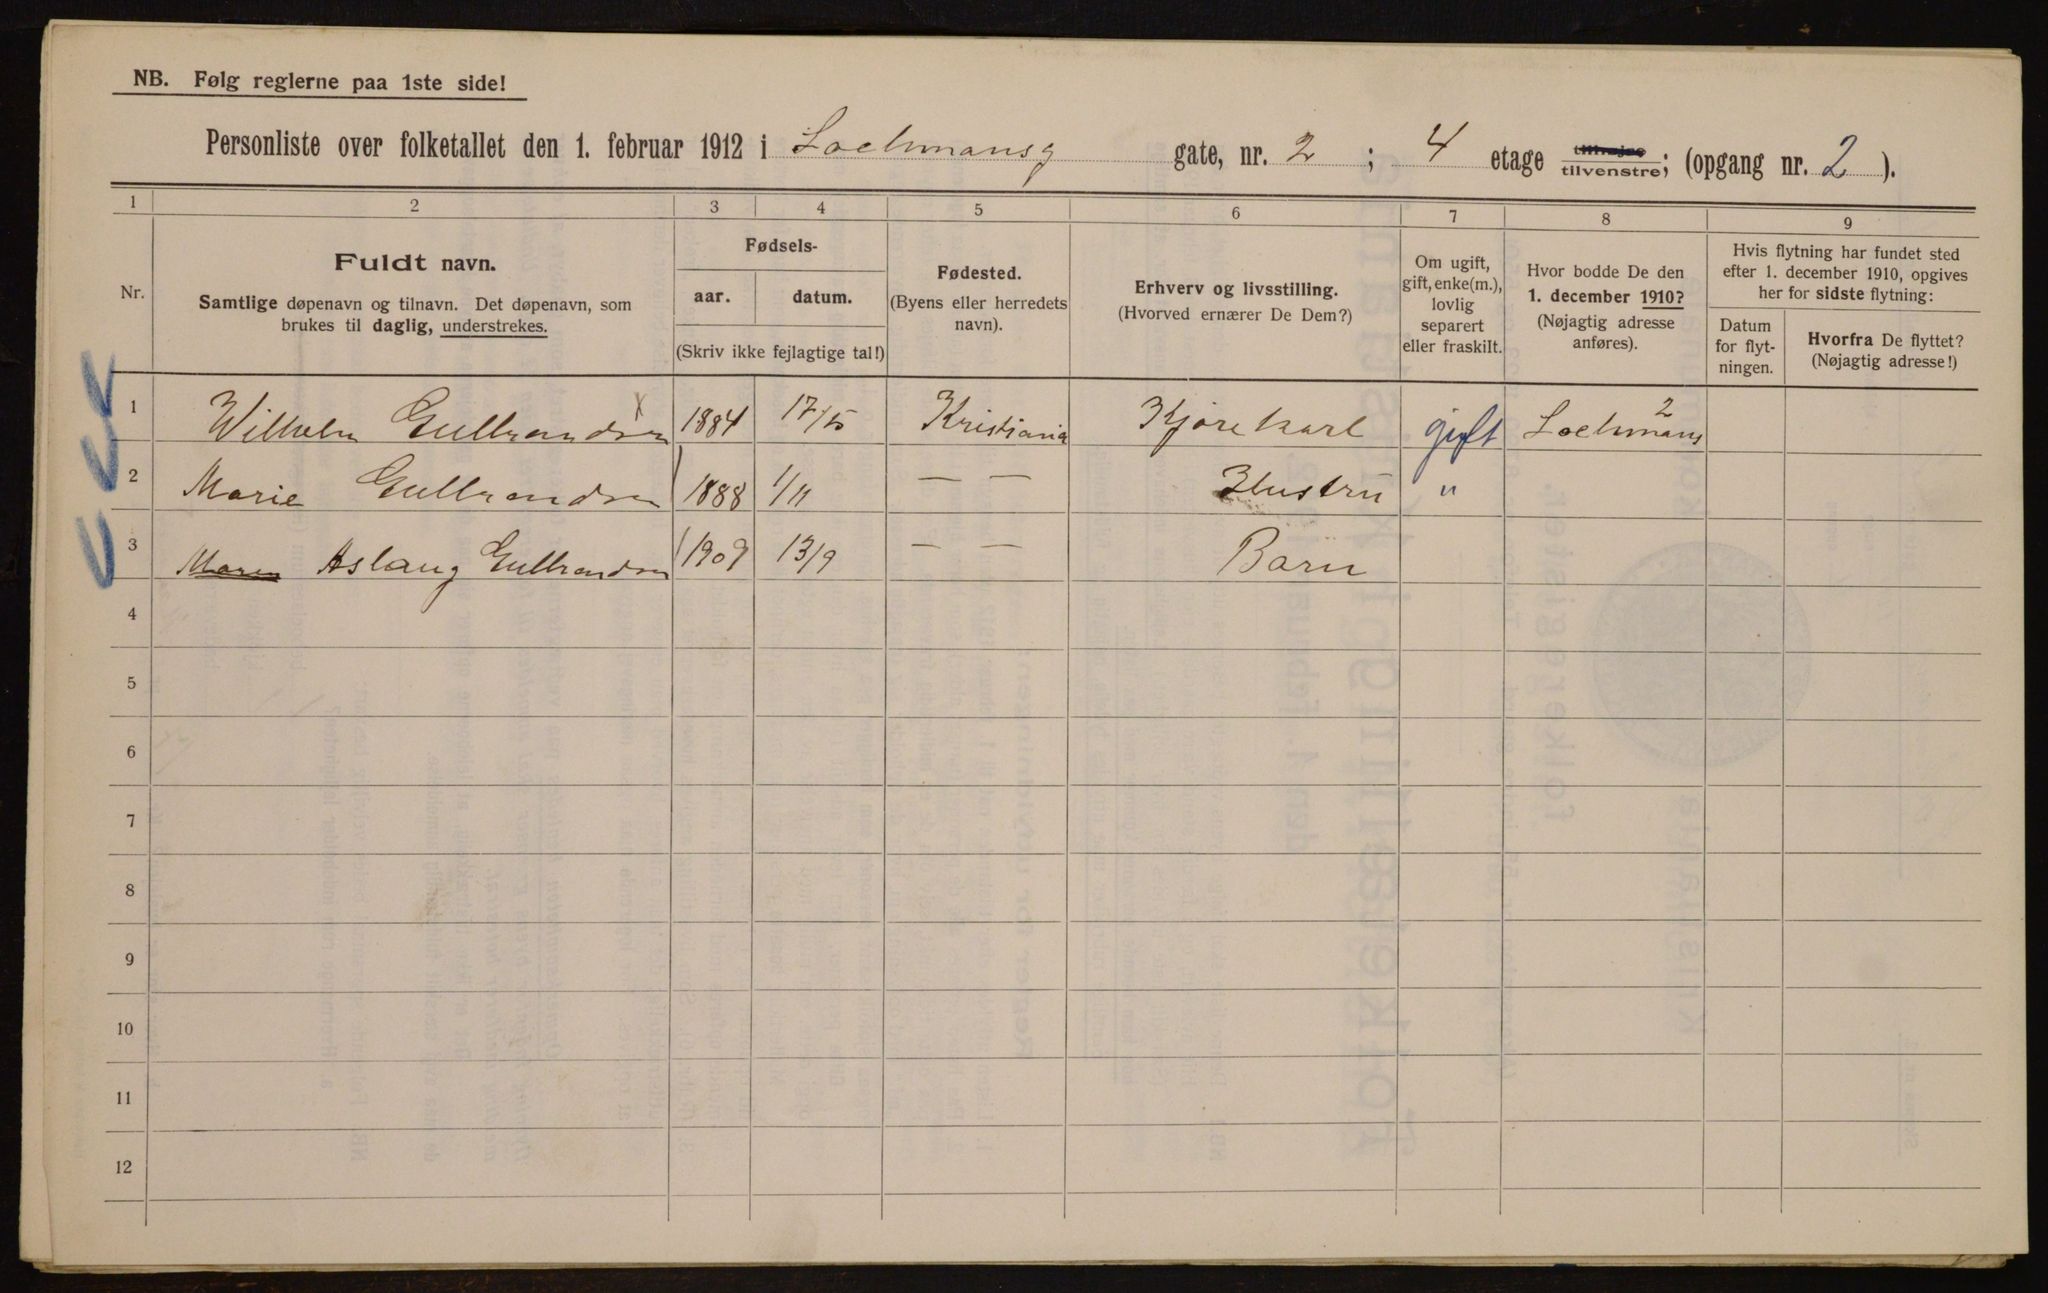 NB. Følg reglerne paa 1ste side!
Personliste over folketallet den 1. februar 1912 i Lochmansg gate, nr. 2 ; 4 etage tilhøjre tilvenstre; (opgang nr. 2 ).
1 2 3 4 5 6 7 8 9
Nr.
Fuldt navn.
Samtlige døpenavn og tilnavn. Det døpenavn, som
brukes til daglig, understrekes.
Fødsels-
aar. datum.
(Skriv ikke fejlagtige tal!)
Fødested.
(Byens eller herredets
navn).
Erhverv og livsstilling.
(Hvorved ernærer De Dem?)
Om ugift,
gift, enke(m.),
lovlig
separert
eller fraskilt.
Hvor bodde De den
1. december 1910?
(Nøjagtig adresse
anføres).
Hvis flytning har fundet sted
efter 1. december 1910, opgives
her for sidste flytning:
Datum
for flyt-
ningen.
Hvorfra De flyttet?
(Nøjagtig adresse!)
1 Wilhelm Gulbrandsen 1884 17/5 Kristiania Kjørekarl gift Lochmans 2
2 Marie Gulbrandsen 1888 1/11 — — Hustru "
3 Maren Aslaug Gulbrandsen 1909 13/9 — — Barn
4
5
6
7
8
9
10
11
12